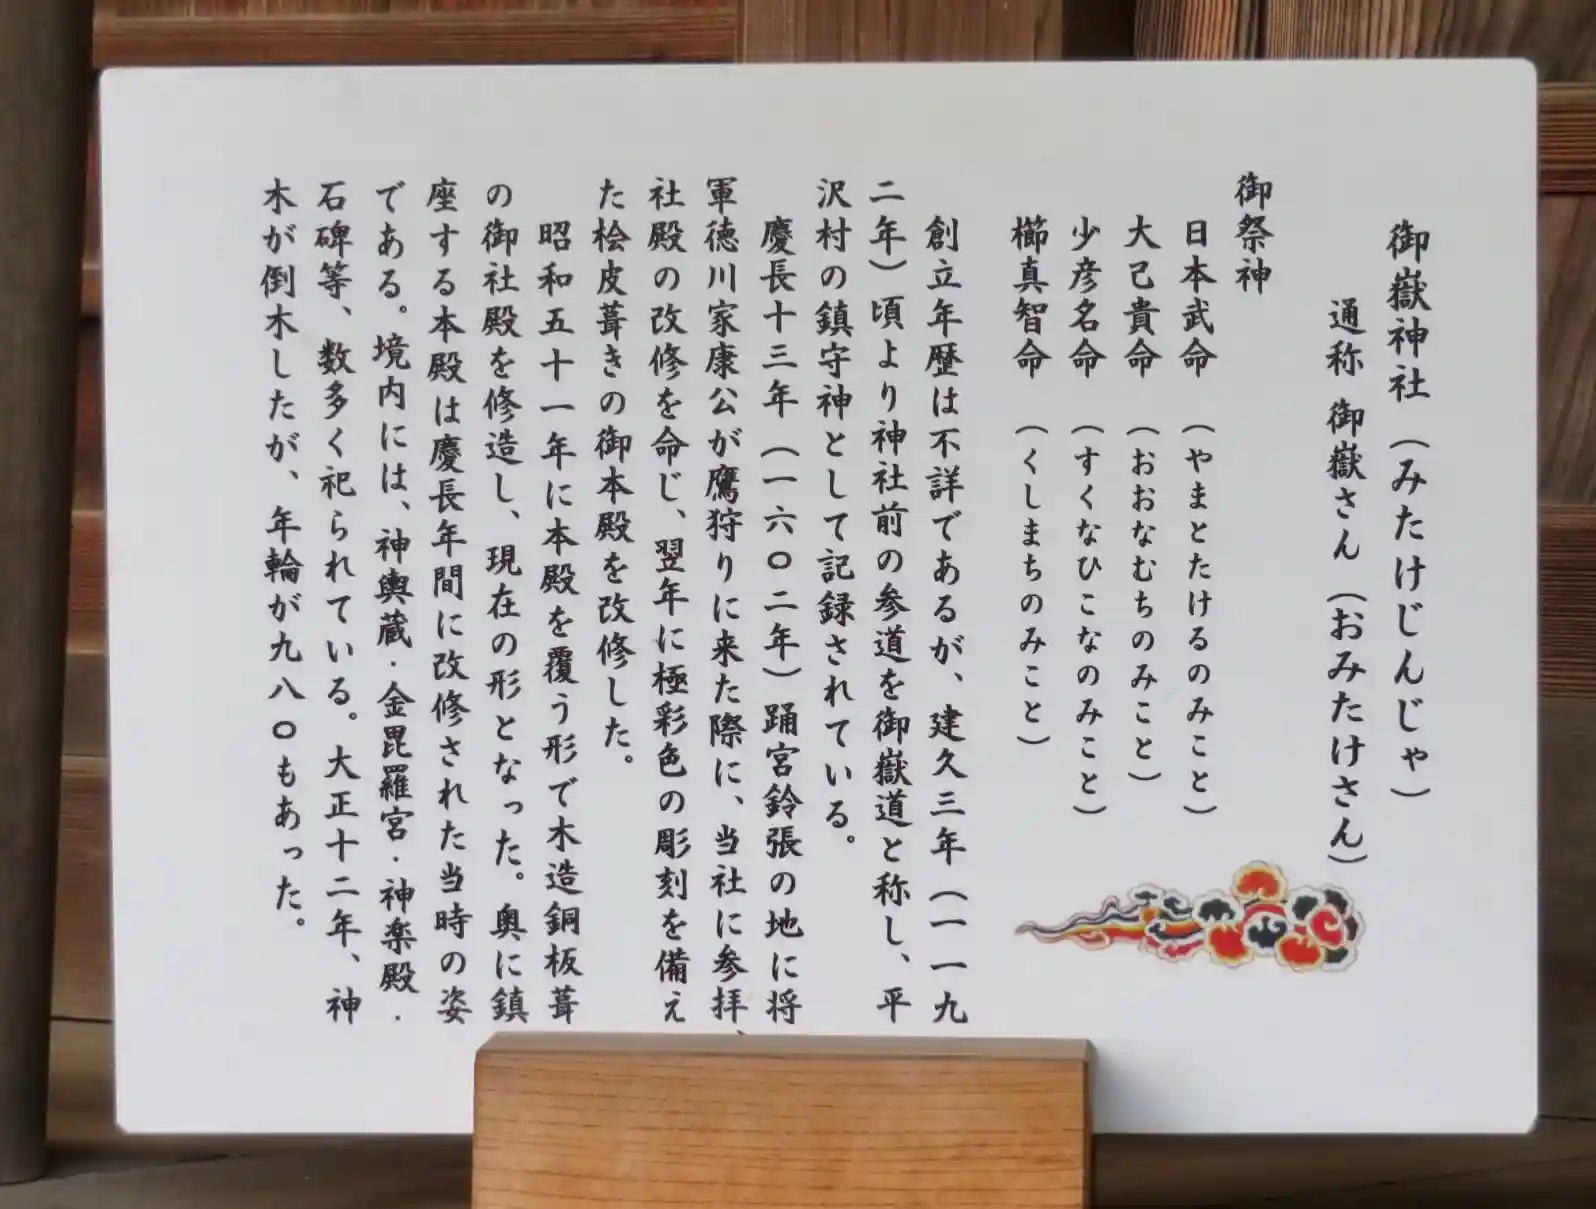 御嶽神社（みたけじんじゃ）
通称 御嶽さん（おみたけさん）
御祭神
日本武命（やまとたけるのみこと）
大己貴命（おおなむちのみこと）
少彦名命（すくなひこなのみこと）
櫛真智命（くしまちのみこと）
創立年歴は不詳であるが、建久三年（一一九
二年）頃より神社前の参道を御嶽道と称し、平
沢村の鎮守神として記録されている。
慶長十三年（一六〇二年）踊宮鈴張の地に将
軍徳川家康公が鷹狩りに来た際に、当社に参拝、
社殿の改修を命じ、翌年に極彩色の彫刻を備え
た桧皮葺きの御本殿を改修した。
昭和五十一年に本殿を覆う形で木造銅板葺
の御社殿を修造し、現在の形となった。奥に鎮
座する本殿は慶長年間に改修された当時の姿
である。境内には、神輿蔵・金毘羅宮・神楽殿・
石碑等、数多く祀られている。大正十二年、神
木が倒木したが、年輪が九八〇もあった。